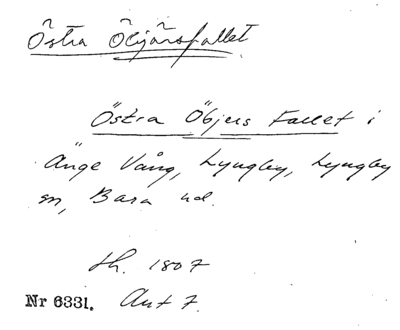 Östra Öbjärsfallet
Östra Öbjers Fallet i
Änge Vång, Lyngby, Lyngby
sn, Bara hd.
Lh. 1807
Nr 6331. Akt 7.